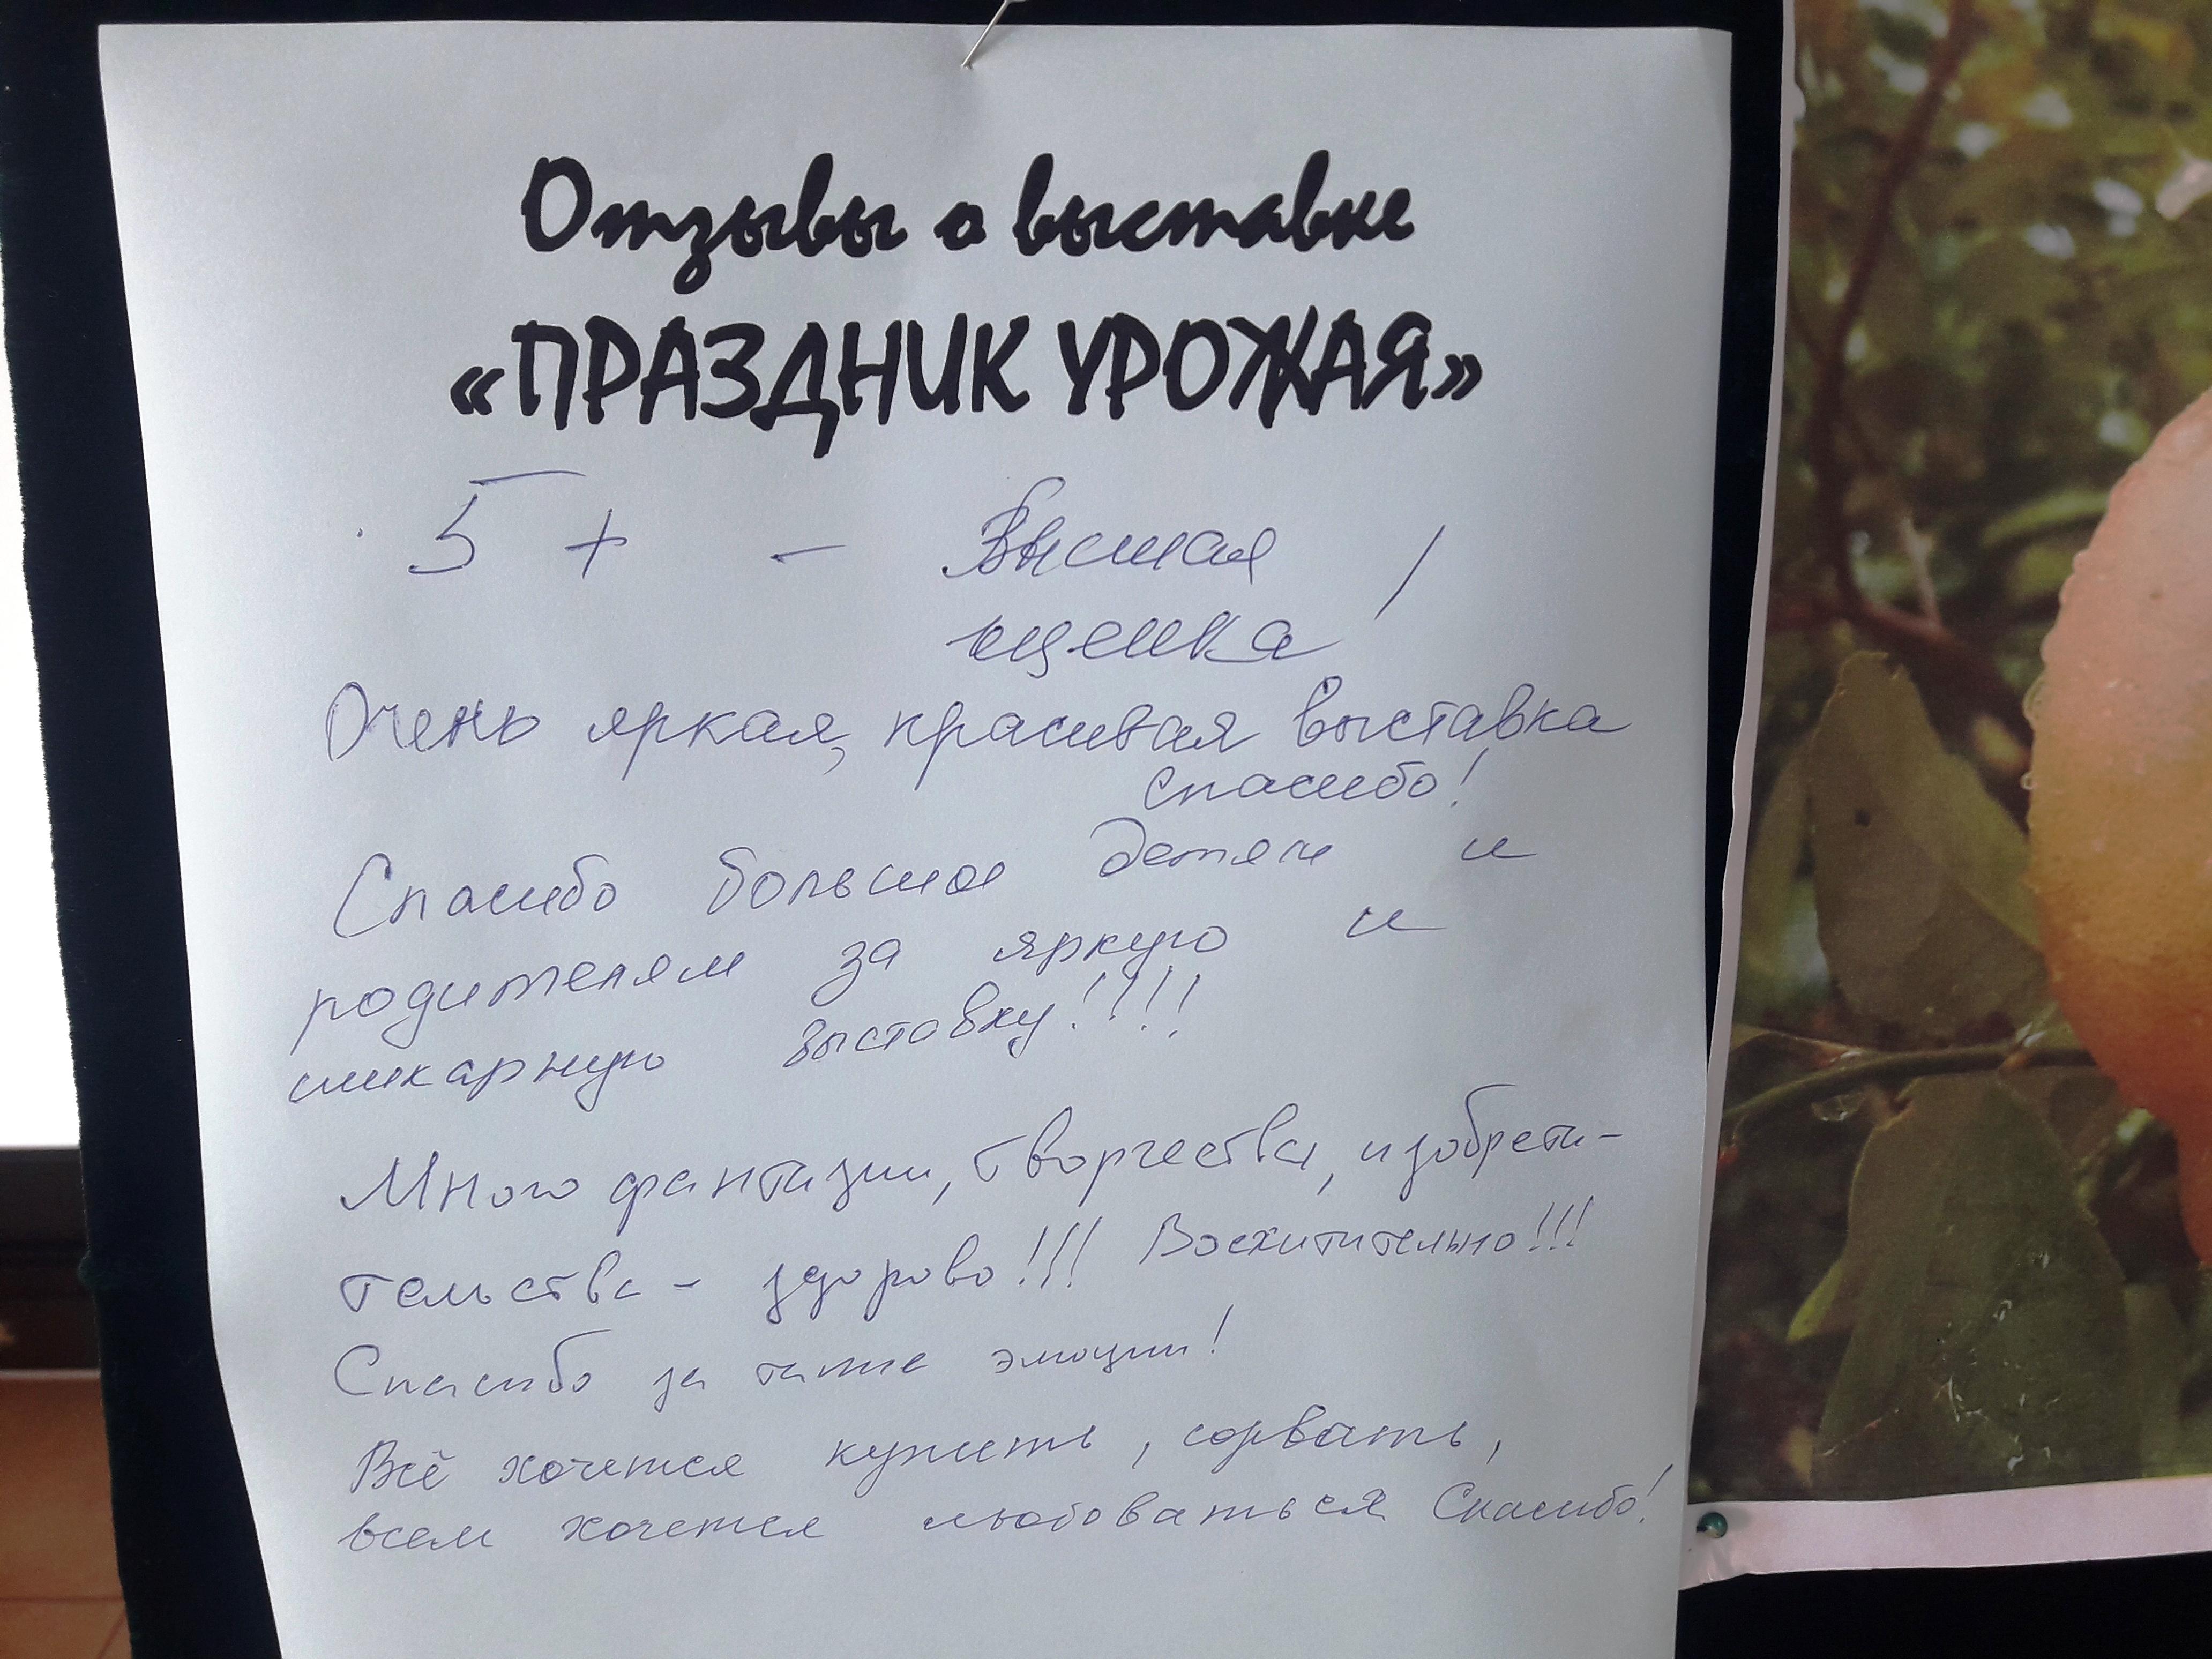 Отзывы о выставке
«ПРАЗДНИК УРОЖАЯ»
5 + - Высшая
оценка !
Очень яркая, красивая выставка
спасибо!
Спасибо большое детям и
родителям за яркую и
шикарную выставку!!!!
Много фантазии, творчества, изобрети-
тельства - здорово!!! Восхитительно!!!
Спасибо за такие эмоции!
Всё хочется купить, сорвать,
всем хочется любоваться Спасибо!